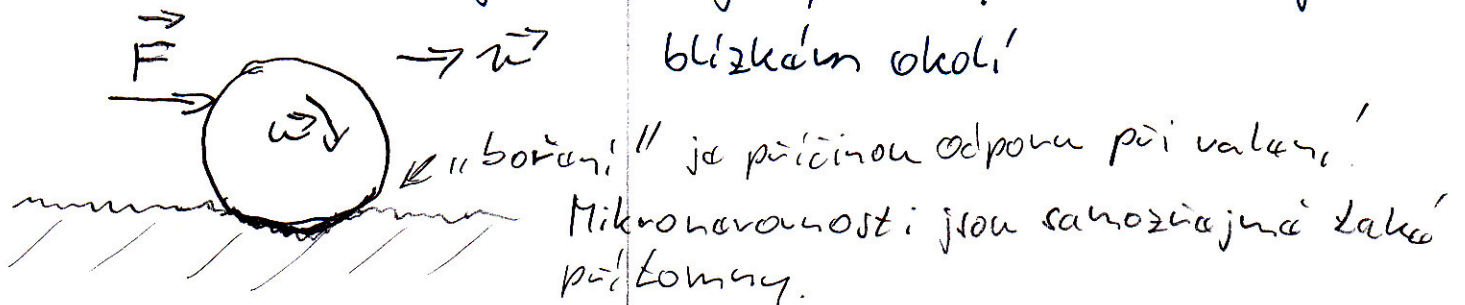 F → v blízkém okolí
ω
„boření" je příčinou odporu při valení.
Mikronerovnosti jsou samozřejmě také
přítomny.